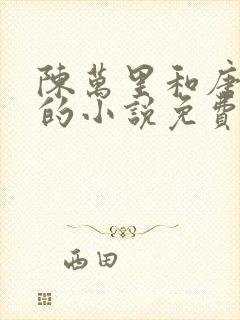 陳萬里和唐
的小說免費
西田